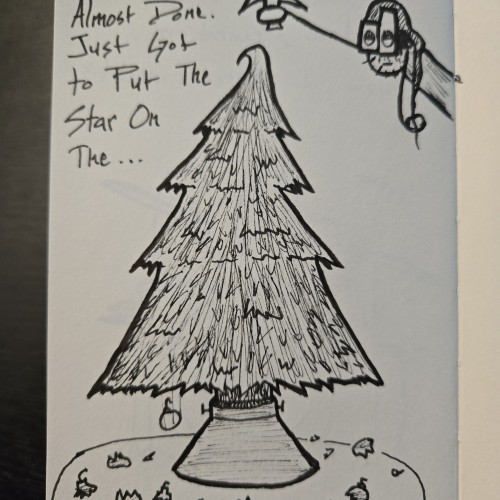 Almost Done.
Just Got
to Put The
Star On
The...